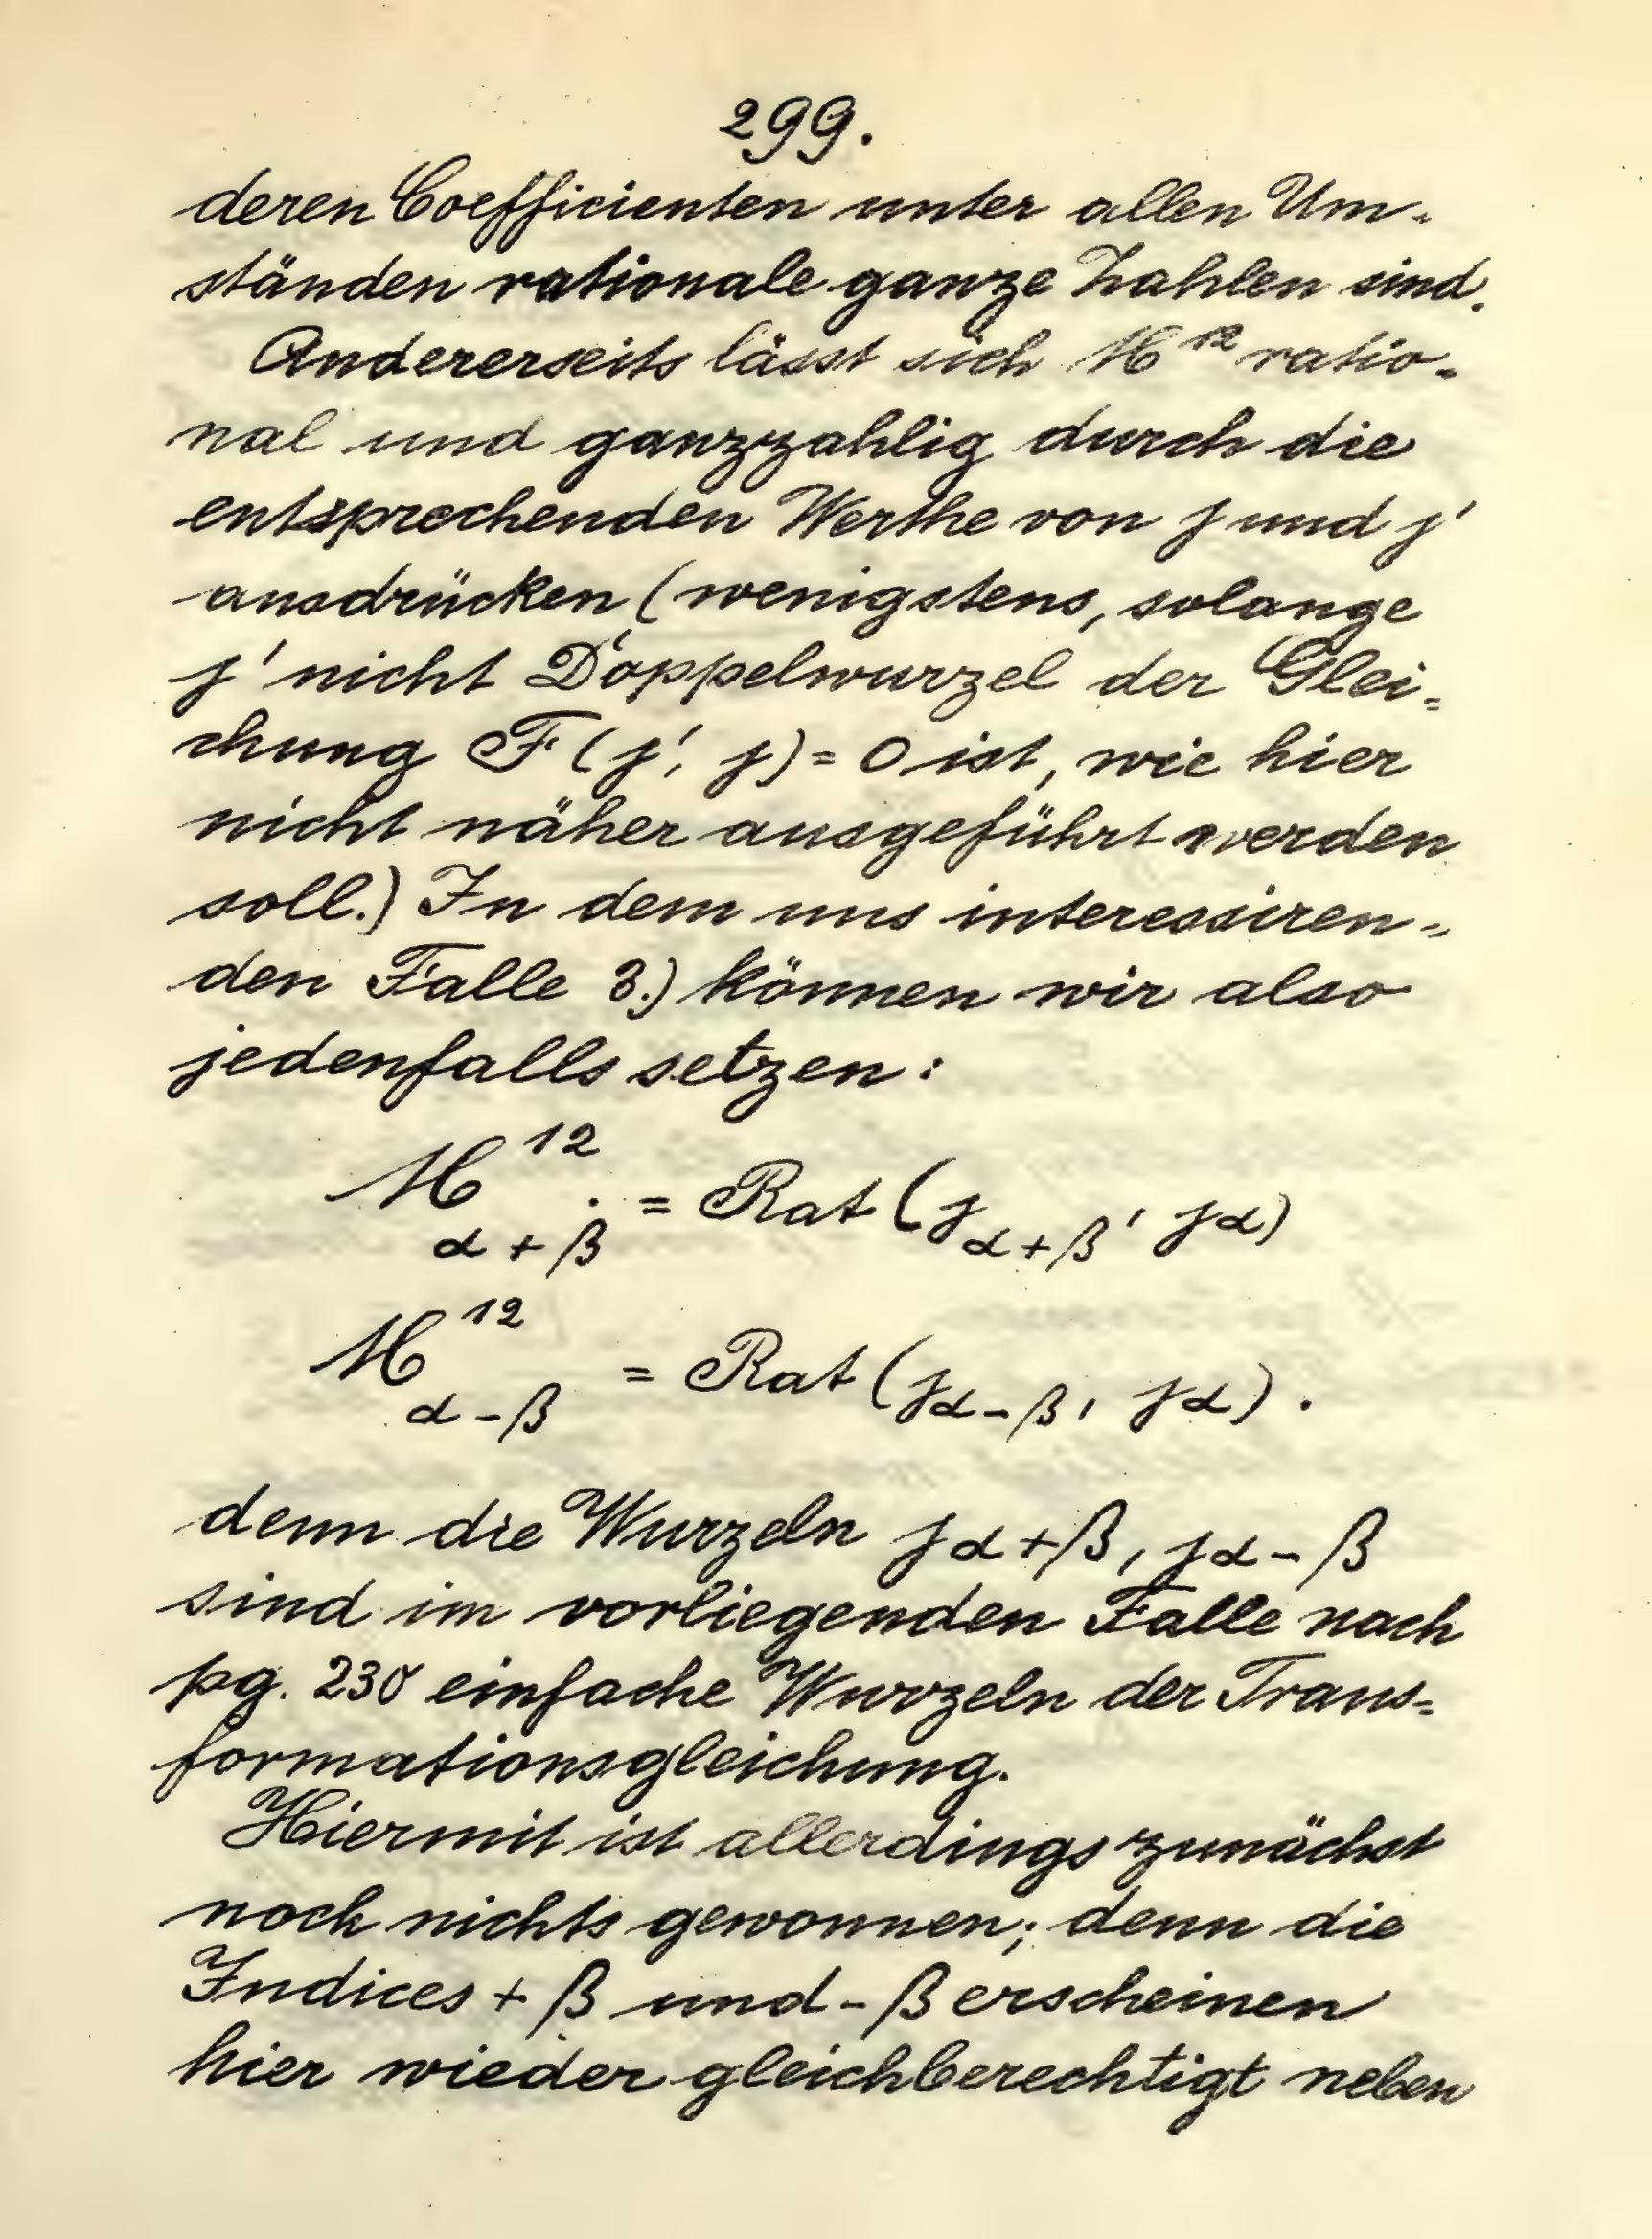 299.
deren Coefficienten unter allen Um-
ständen rationale ganze Zahlen sind.
Andererseits lässt sich M^12 ratio-
nal und ganzzahlig durch die
entsprechenden Werthe von j und j'
ausdrücken (wenigstens, solange
j' nicht Doppelwurzel der Glei-
chung F(j', j) = 0 ist, wie hier
nicht näher ausgeführt werden
soll.) In dem uns interessiren-
den Falle 3.) können wir also
jedenfalls setzen:
M^12_{α+β} = Rat (j_{α+β}, j_α)
M^12_{α-β} = Rat (j_{α-β}, j_α).
denn die Wurzeln j_{α+β}, j_{α-β}
sind im vorliegenden Falle nach
pg. einfache Wurzeln der Trans-
formationsgleichung.
Hiermit ist allerdings zunächst
noch nichts gewonnen; denn die
Indices + β und - β erscheinen
hier wieder gleichberechtigt neben